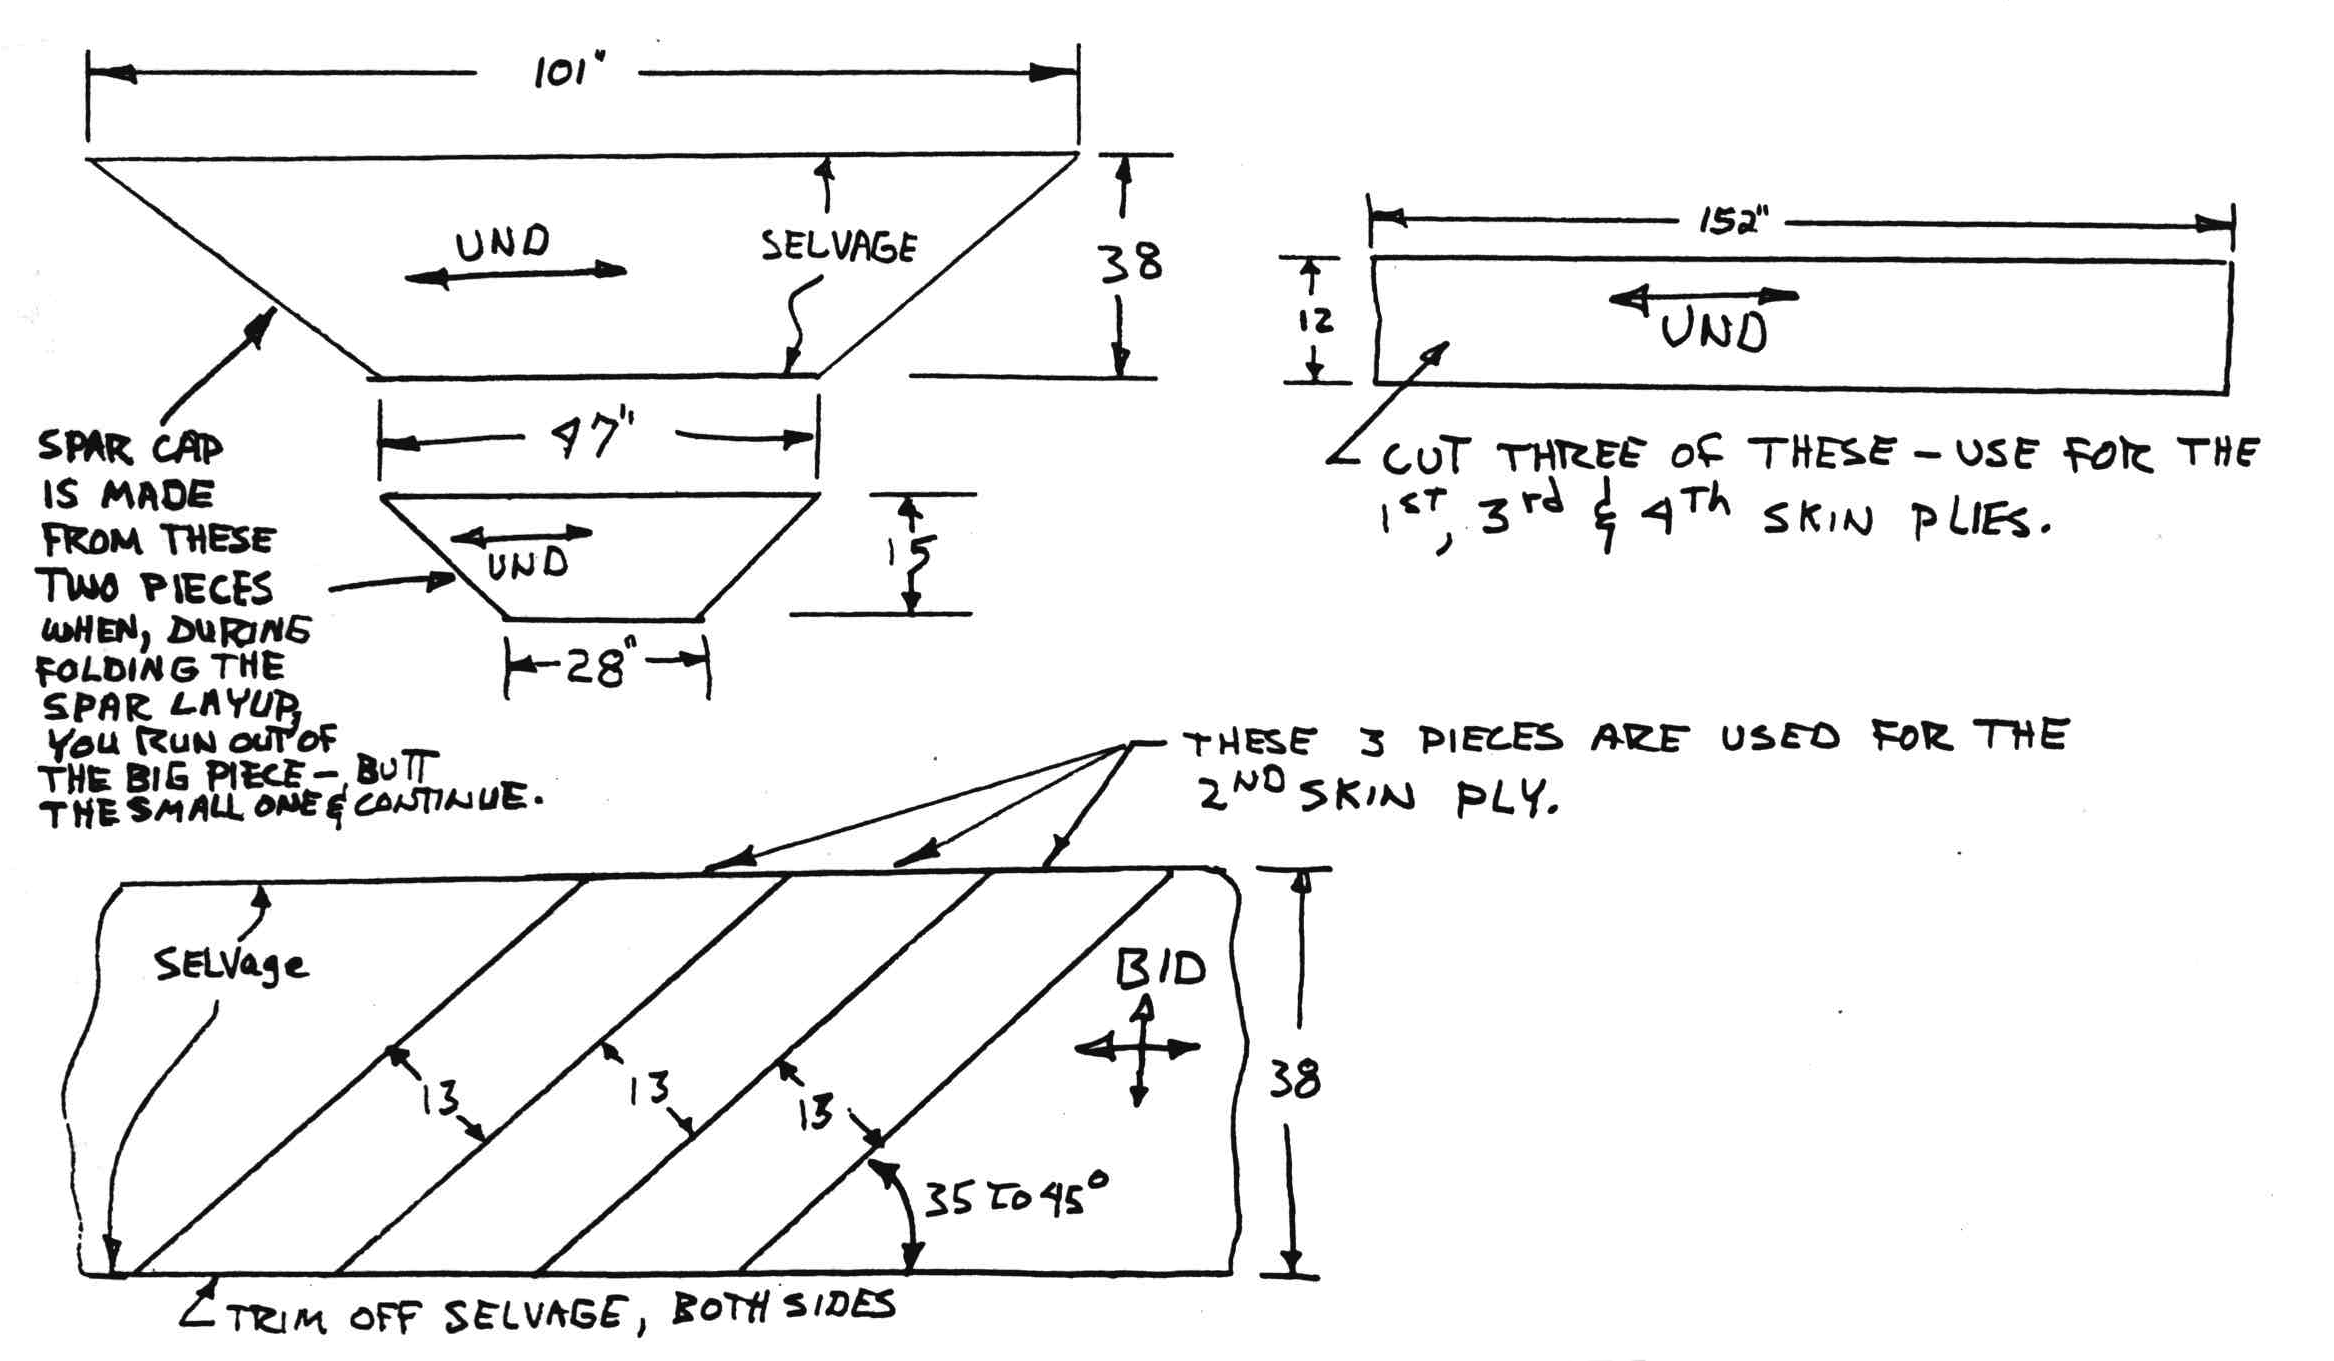 101"
UND
SELVAGE
38
47"
UND
15
28"
SPAR CAP
IS MADE
FROM THESE
TWO PIECES
WHEN, DURING
FOLDING THE
SPAR LAYUP,
YOU RUN OUT OF
THE BIG PIECE – BUTT
THE SMALL ONE & CONTINUE.
152"
12
UND
CUT THREE OF THESE – USE FOR THE
1ST, 3rd & 4Th SKIN PLIES.
THESE 3 PIECES ARE USED FOR THE
2ND SKIN PLY.
SELVage
BID
13
13
13
38
35 TO 45°
TRIM OFF SELVAGE, BOTH SIDES